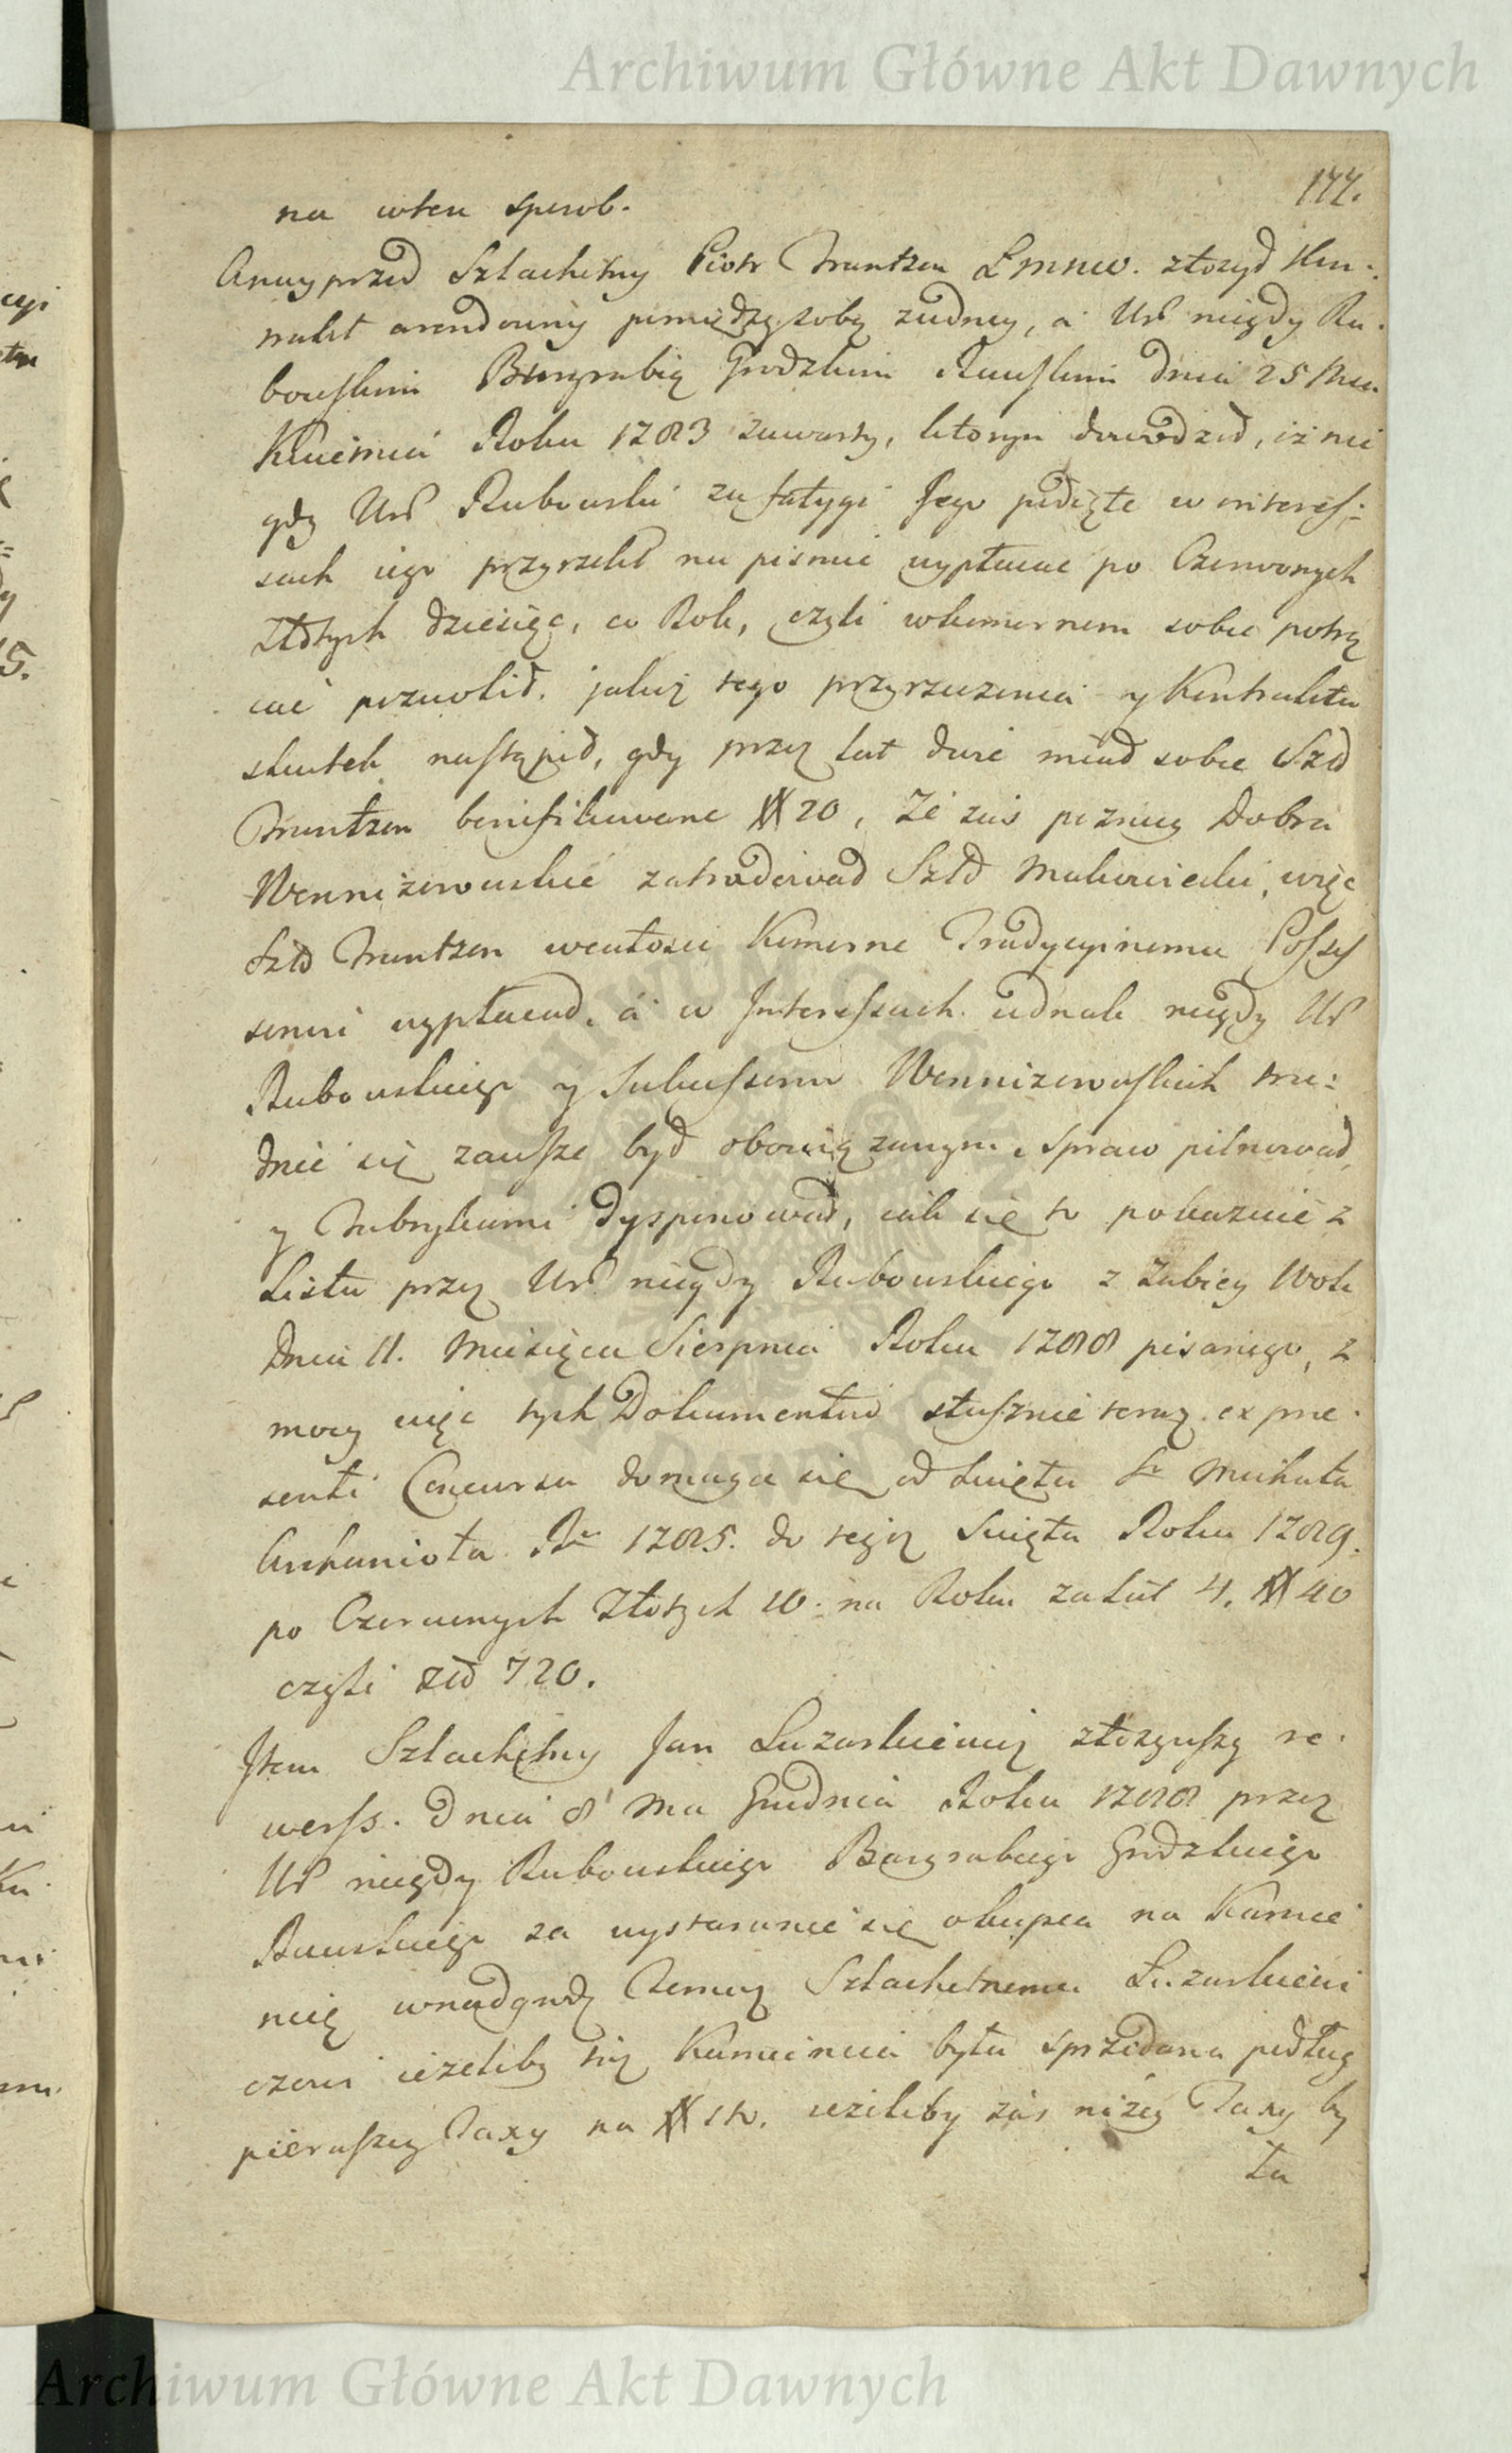 Archiwum Główne Akt Dawnych
177.
na wten sposob.
A nayprzod Szlachetny Piotr Truntzen złozył Kon-
trakt arendowny pomiędzy sobą z iedney, a Ur niegdy Ra-
bowskim Burgrabią Grodzkim Rawskim dnia 25 Mca
Kwietnia Roku 1783 zawarty, ktorym dowodził, iż nie
gdy Ur Rabowski za fatygi Jego podięte w interes-
sach iego przyrzekł na pismie wypłacac po Czerwonych
Złotych dziesięc, co Rok, czyli wkomornem sobie potrą
cac pozwolił. jakoż tego przyrzeczenia y Kontraktu
skutek nastąpił, gdy przez lat dwie miał sobie Szld
Truntzen bonifikowane # 20, Ze zas pozniey Dobra
zatradował Szld Makowiecki, więc
Szld Truntzen wcałosci Komorne Tradycyinemu Possess
sorowi wypłacał, a w Interessach iednak niegdy Ur
Rabowskiego y Sukcessorow tru-
dnic się zawsze był obowiązanym, spraw pilnował,
y dysponował, iak się to pokazuie z
Listu przez Ur niegdy Rabowskiego z Zabiey Woli
Dnia 11. Miesiąca Sierpnia Roku 1788 pisanego, z
mocy więc tych Dokumentow słusznie teraz ex prae-
senti Concursu domaga się od swięta So Michała
Archanioła Ru 1785. do tegoż Swięta Roku 1789.
po Czerwonych Złotych 10. na Roku za lat 4. # 40
czyli złd 720.
Item Szlachetny Jan Łazarkiewicz złozywszy re-
werss. Dnia 8 Ma Grudnia Roku 1788 przez
Ur niegdy Rabowskiego Burgrabiego Grodzkiego
Rawskiego za wystaranie się okupca na Kamie
nicę wnadgrodę Temuż Szlachetnemu Łazarkiewi
czowi ieżeliby taż Kamienica była sprzedana podług
pierwszey Taxy na # ieżeliby zas niżey Taxy by
ła
Archiwum Główne Akt Dawnych